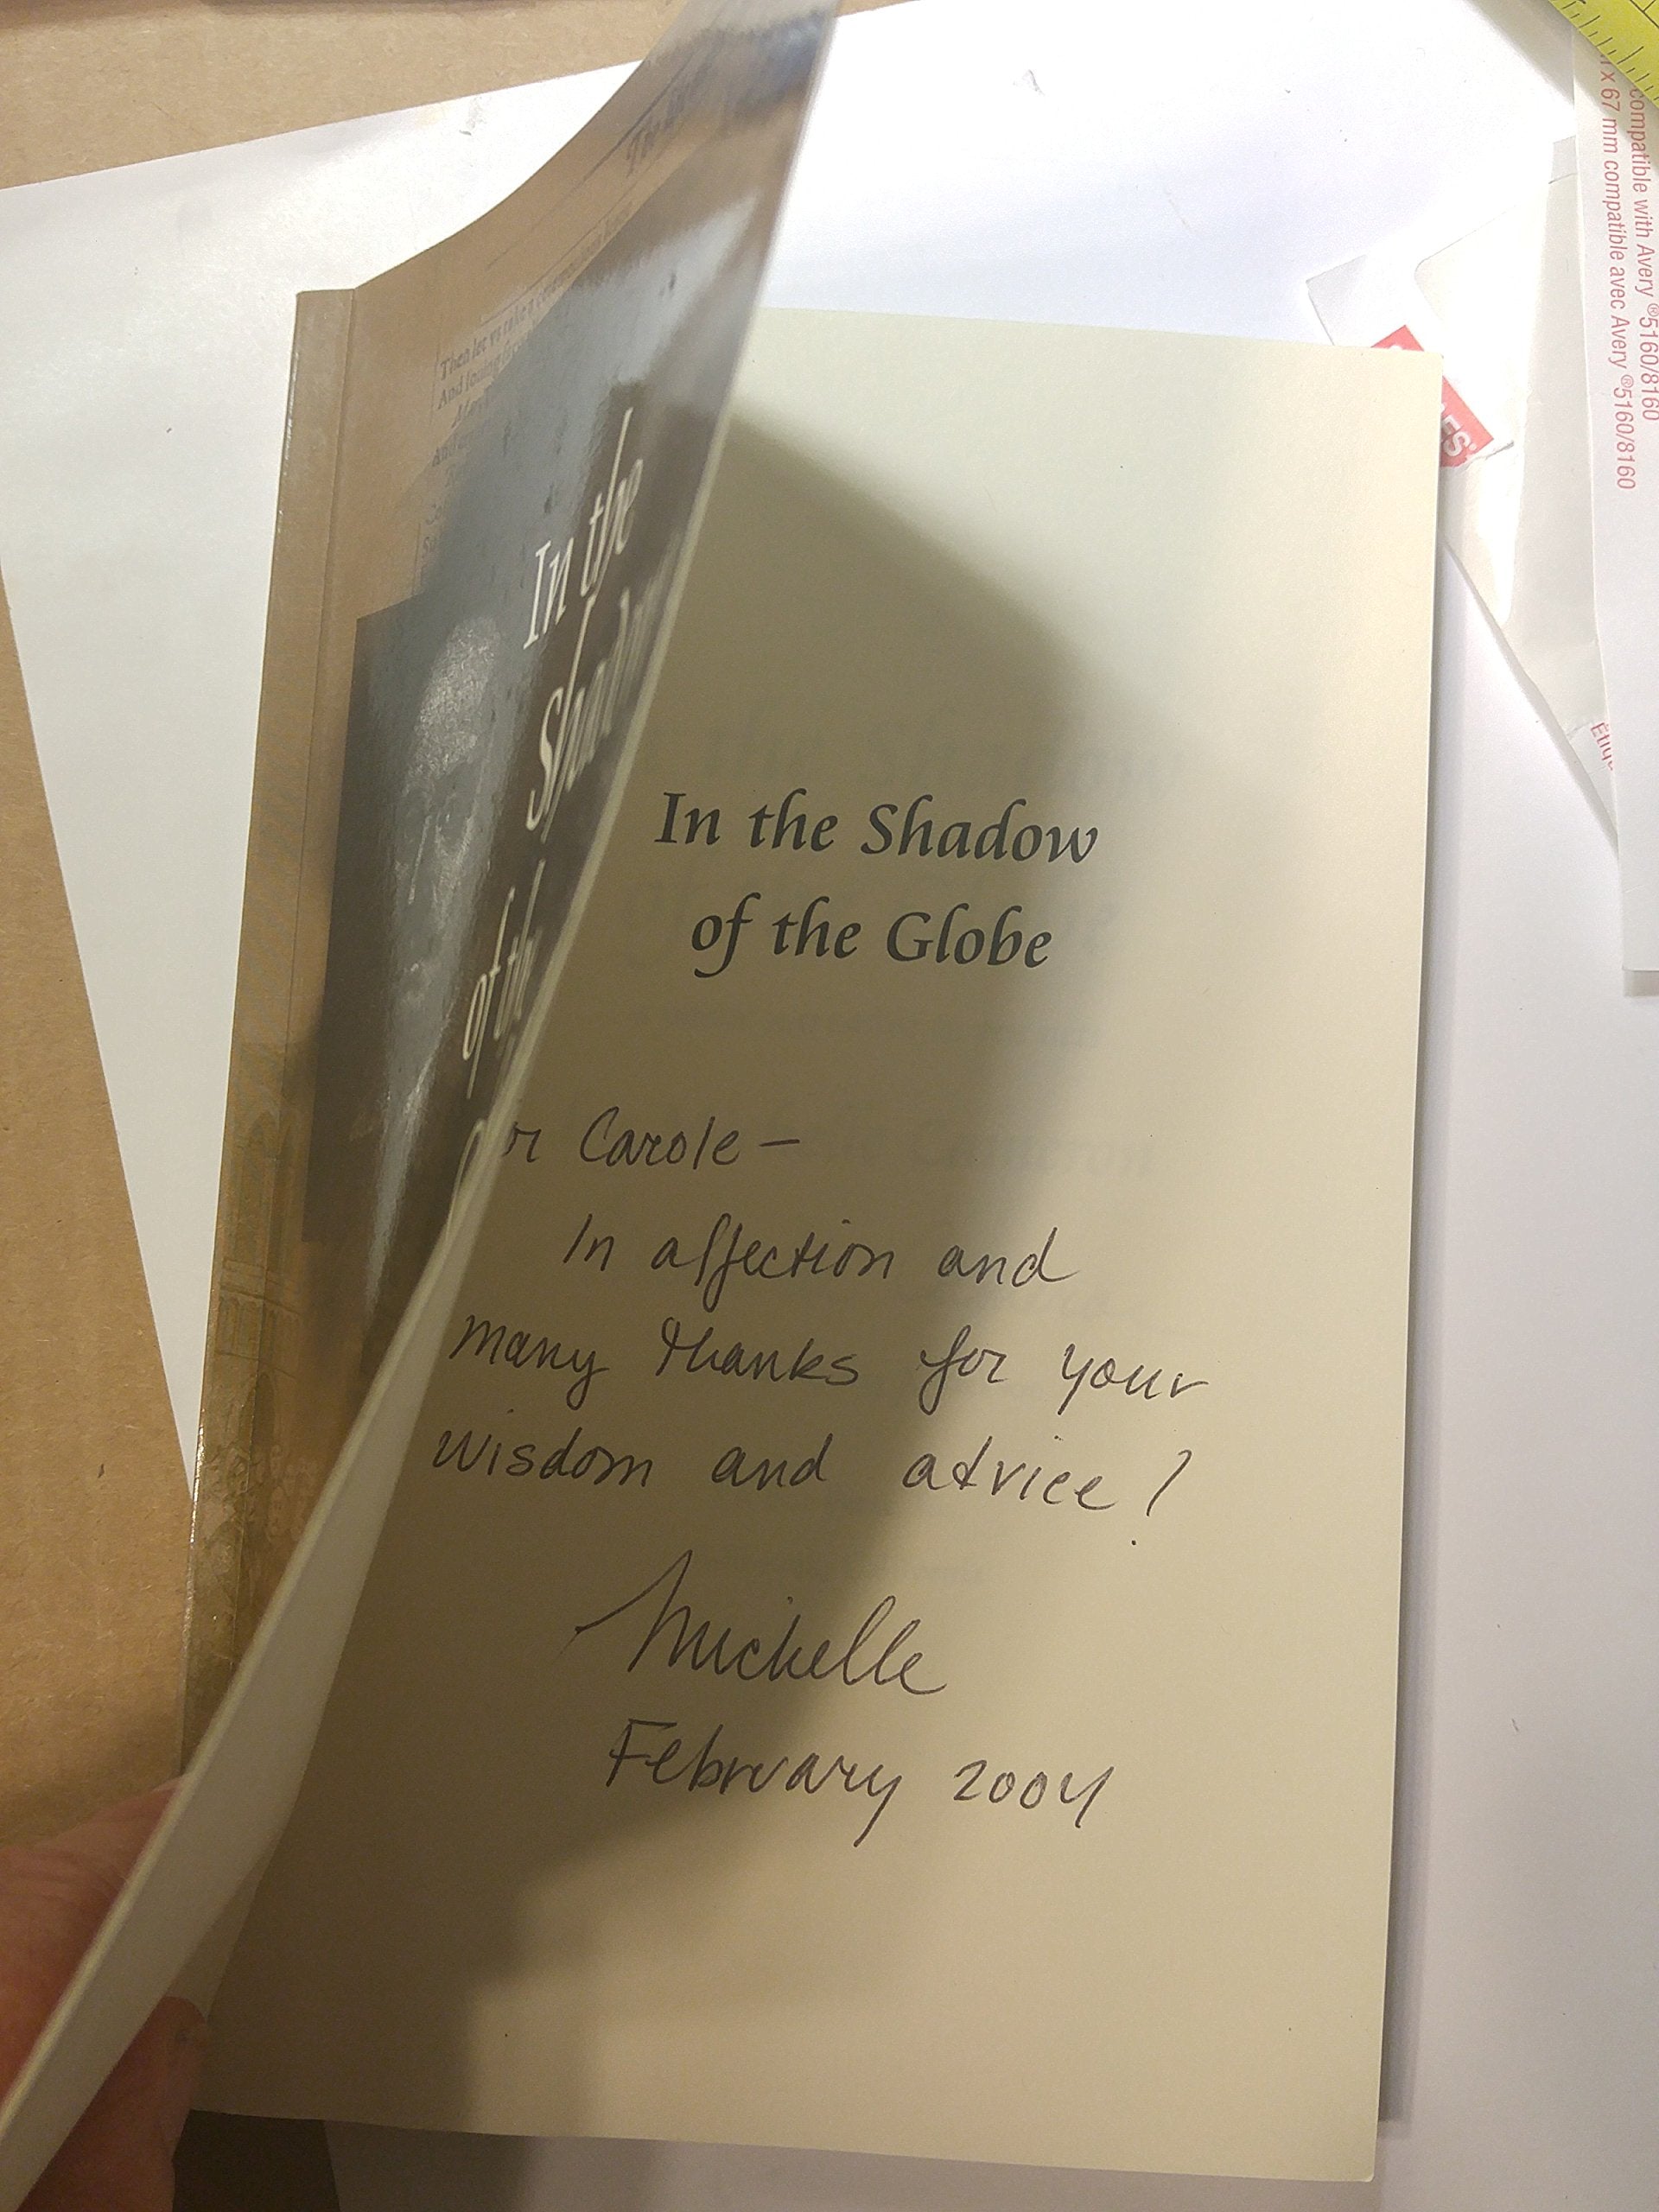 In the
of the
Then let vs
And
In the Shadow
of the Globe
r Carole —
In affection and
many thanks for your
wisdom and advice!
Michelle
February 2004
compatible with Avery ®5160/8160
x 67 mm compatible avec Avery ®5160/8160